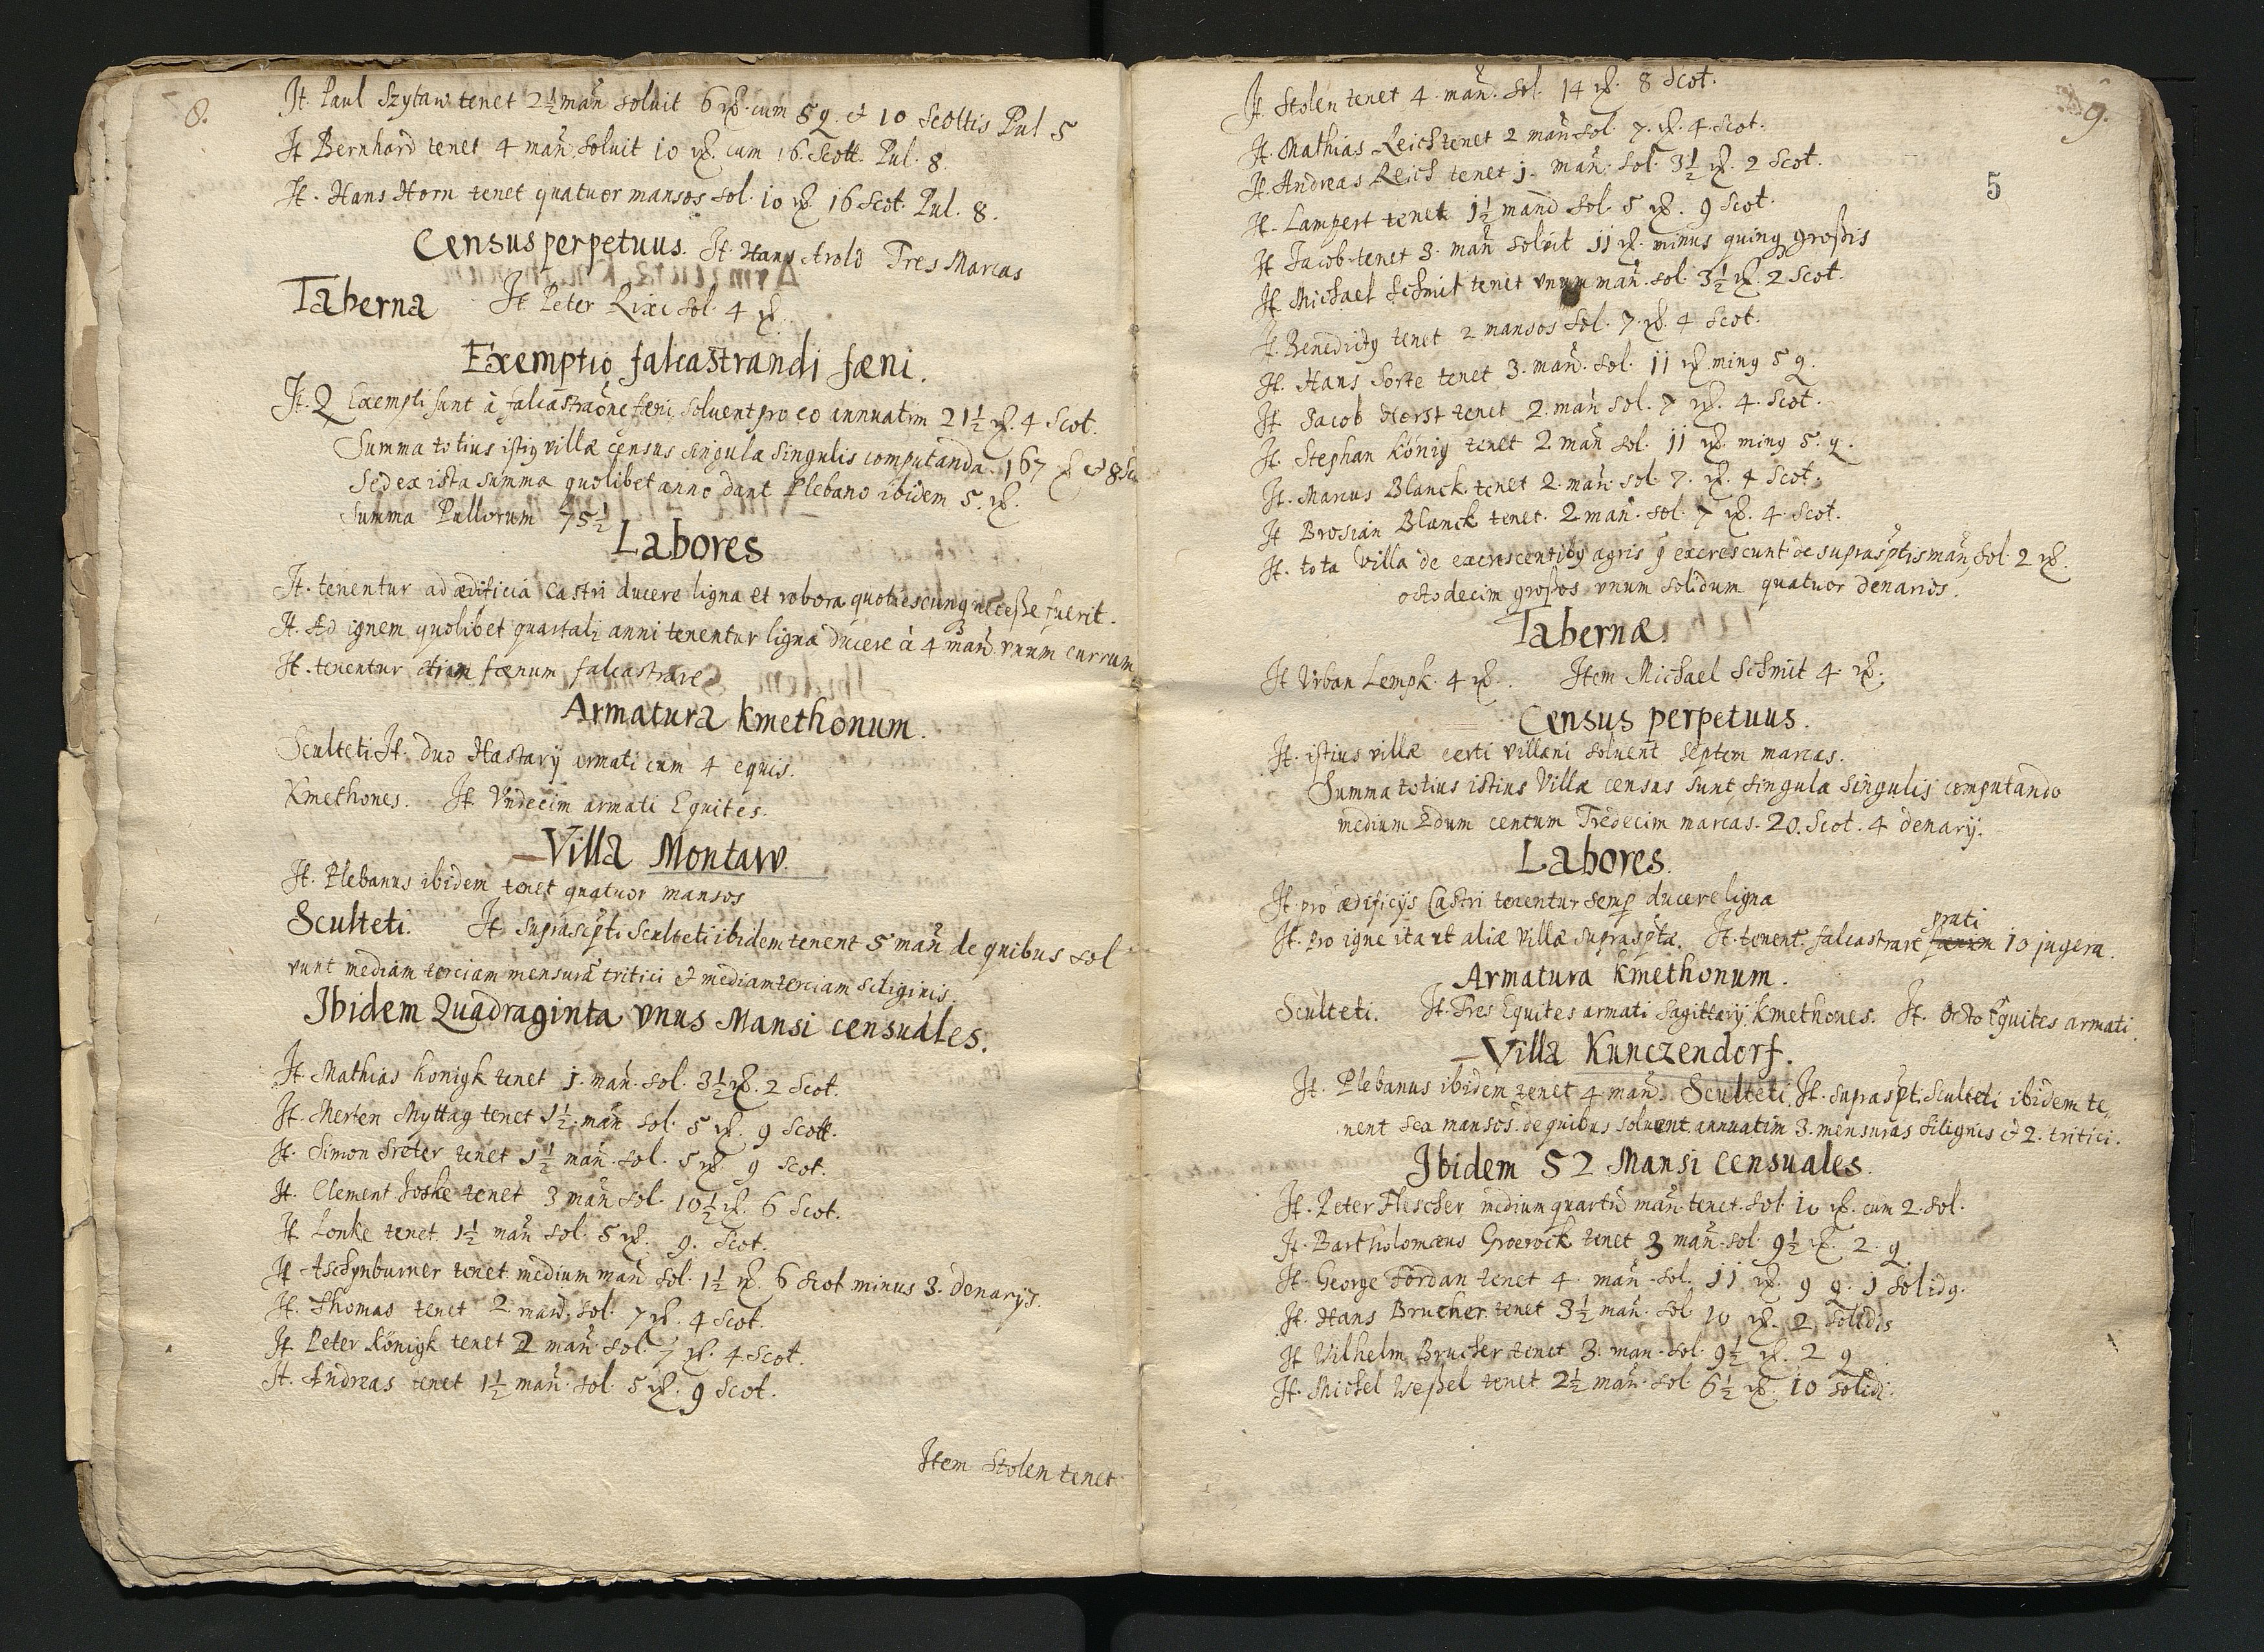 8.
It. Paul Szytaw tenet 2½ mañ soluit 6 ₰. cum 5 q. et 10 Scottis Pul 5
It Bernhard tenet 4 mañ soluit 10 ₰. cum 16. Scott. Pul. 8.
It. Hans Horn tenet quatuor mansos sol. 10 ₰. 16 Scot. Pul. 8.
Census perpetuus. It. Hans Arold Tres Marcas
Taberna It. Peter Rixe sol. 4 ₰.
Exemptio falcastrandi fæni.
It. Q Exempti sunt à falcastraõne fæni, soluent pro eo annuatim 21½ ₰. 4 Scot.
Summa totius istiq villæ census singula singulis computanda. 167 ₰ et 8 Sc
Sed ex ista summa quolibet anno dant Plebano ibidem 5. ₰.
Summa Pullorum 75½
Labores
It. tenentur ad ædificia Castri ducere ligna et robora quotiescunq necesse fuerit.
It. Ad ignem quolibet quartali anni tenentur ligna ducere à 4 mañ. vnum currum
It. tenentur etiam fænum falcastrare
Armatura kmethonum.
Sculteti It. duo Hastarij armati cum 4 equis.
Kmethones. It. Vndecim armati Equites.
Villa Montaw.
It. Plebanus ibidem tenet quatuor mansos
Sculteti. It. suprascpti Sculteti ibidem tenent 5 mañ de quibus sol
vunt mediam terciam mensurã tritici et mediam terciam siliginis.
Ibidem Quadraginta vnus Mansi censuales.
It. Mathias konigk tenet 1. mañ. sol. 3½ ₰. 2 Scot.
It. Merten Myttag tenet 1½ mañ sol. 5 ₰. 9 Scott.
It. Simon Sreter tenet 1½ mañ. sol. 5 ₰. 9 Scot.
It. Clement Joske tenet 3 mañ sol. 10½ ₰. 6 Scot.
It. Lonke tenet. 1½ mañ sol. 5 ₰. 9. Scot.
It Aschynburner tenet medium mañ sol. 1½ ₰. 6 Scot minus 3. denarijs.
It. Thomas tenet 2 mañ. sol. 7 ₰. 4 Scot.
It. Peter Königk tenet 2 mañ sol. 7 ₰. 4. Scot.
It. Andreas tenet 1½ mañ. sol. 5 ₰. 9 Scot.
Item Stolen tenet
9.
5
It Stolen tenet 4. mañ. sol. 14 ₰. 8 Scot.
It. Mathias Reich tenet 2 mañ sol. 7. ₰. 4. Scot.
It. Andreas Reich tenet 1. mañ. sol. 3½ ₰. 2 Scot.
It. Lampert tenet 1½ mand sol. 5 ₰. 9 Scot.
It Jacob tenet 3. mañ soluit 11 ₰. minus quinq großis
It. Michael Schmit tenet vnum mañ. sol. 3½ ₰. 2 Scot.
It. Benedictq tenet 2 mansos sol. 7. ₰. 4 Scot.
It. Hans Sorte tenet 3. mañ. sol. 11 ₰ minq 5 q.
It Jacob Horst tenet 2. mañ sol. 7 ₰. 4. Scot.
It. Stephan König tenet 2 mañ sol. 11 ₰. minq 5. q.
It. Marcus Blanck. tenet 2. mañ. sol. 7. ₰. 4 Scot.
It Brosian Blanck tenet. 2 mañ. sol. 7 ₰. 4. Scot.
It. tota Villa de excrescentibq agris q excrescunt de suprasptis mañ, sol. 2 ₰.
octodecim großos vnum solidum quatuor denarios.
Tabernæ
It Vrban Lempk. 4 ₰. Item Michael Schmit 4. ₰.
Census perpetuus.
It. istius villæ certi villani soluent septem marcas.
Summa totius istius Villæ census sunt, singula singulis computando
medium 2dum centum Tredecim marcas. 20. Scot. 4 denarij.
Labores.
It. pro ædificijs Castri tenentur semp ducere ligna
prati
It. Pro igne ita ut aliæ villæ supraspta. It. tenent. falcastrare fænum 10 jugera.
Armatura kmethonum.
Sculteti. It. Tres Equites armati Sagittarij. Kmethones. It. Octo Equites armati
Villa Kunczendorf.
It. Plebanus ibidem tenet 4 mañ. Sculteti. It. supraspt. Sculteti ibidem te,
nent sex mansos. de quibus soluent annuatim 3. mensuras siliginis et 2. tritici.
Ibidem 52 Mansi censuales.
It. Peter Flescher medium quartũ mañ tenet. sol. 10 ₰. cum 2. sol.
It. Bartholomæus Groerock tenet 3 mañ. sol. 9½ ₰. 2. q
It. George Jordan tenet 4. mañ. sol. 11 ₰. 9 q. 1 solidq.
It. Hans Brucher tenet 3½ mañ. sol 10 ₰. 2 solidis
It Wilhelm Brucher tenet 3. man. sol. 9½ ₰. 2 q
It. Michel Weßel tenet 2½ mañ. sol 6½ ₰. 10 solidi.